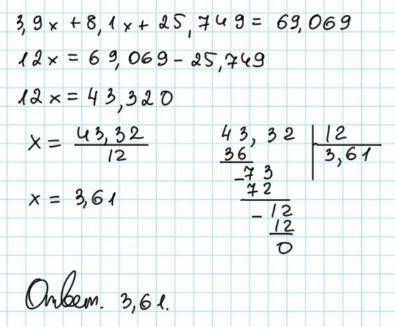 3,9x + 8,1x + 25,749 = 69,069
12x = 69,069 - 25,749
12x = 43,320
x = 43,32/12
43,32 | 12
36 3,61
-73
72
-12
12
0
x = 3,61
Ответ. 3,61.